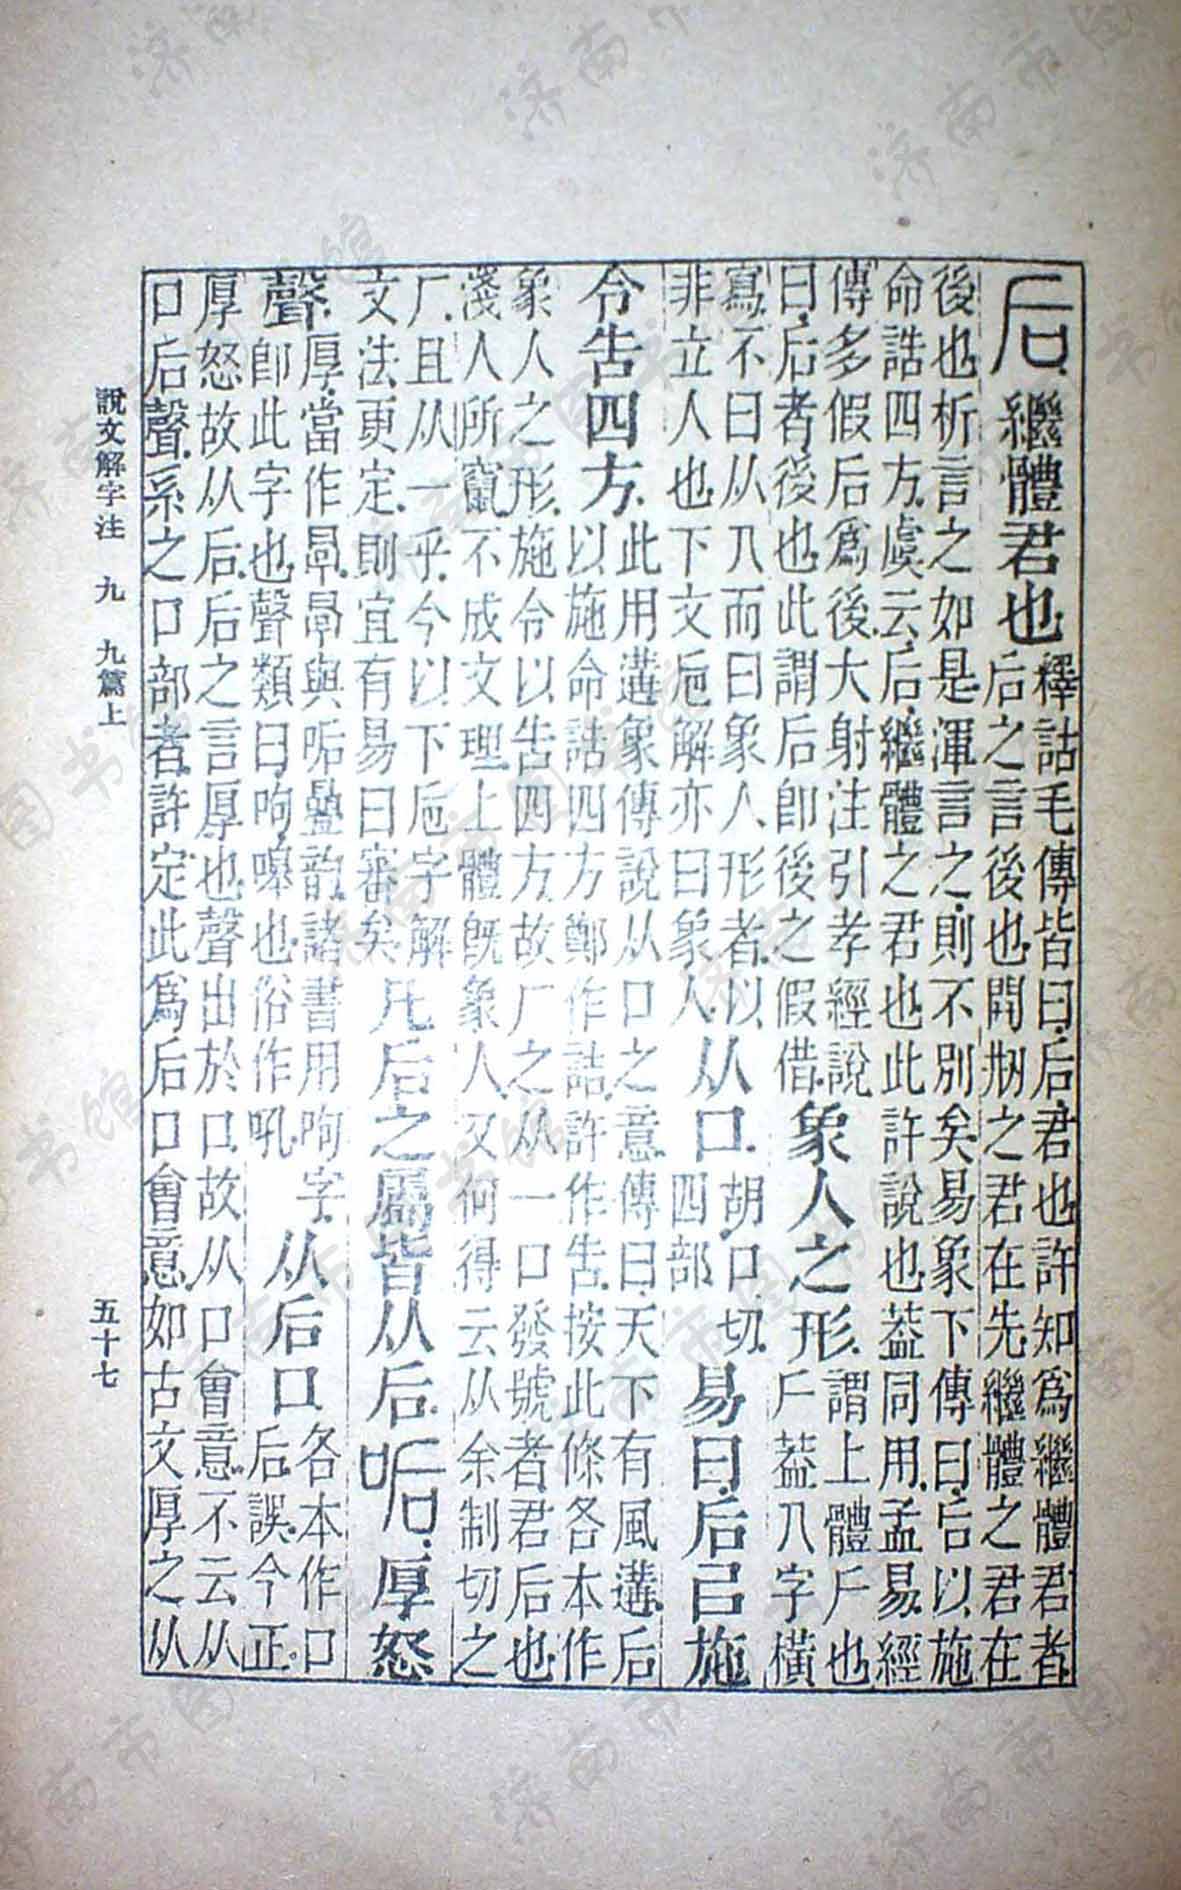 后繼體君也
釋詁毛傳皆曰后君也許知爲繼體君者
后之言後也開刱之君在先繼體之君在
後也析言之如是渾言之則不別矣易象下傳曰后以施
命誥四方虞云后繼體之君也此許說也葢同用孟易經
傳多假后爲後大射注引孝經說
曰后者後也此謂后卽後之假借
象人之形
謂上體𠂆也
𠂆葢入字橫
寫不曰从入而曰象人形者以
非立人也下文卮解亦曰象人
从口
胡口切
四部
易曰后㠯施
令告四方
此用遘象傳說从口之意傳曰天下有風遘后
以施命誥四方鄭作詰許作告按此條各本作
象人之形施令以告四方故厂之从一口發號者君后也
淺人所竄不成文理上體旣象人又何得云从余制切之
厂且从一乎今以下卮字解
文法更定則宜有易曰審矣
凡后之屬皆从后
㖃厚怒
聲
厚當作㫗㫗與㖃曡韵諸書用呴字
卽此字也聲類曰呴嘷也俗作吼
从后口
各本作口
后誤今正
厚怒故从后后之言厚也聲出於口故从口會意不云从
口后聲系之口部者許定此爲后口會意如古文厚之从
說文解字注 九 九篇上
五十七
济南市图书馆